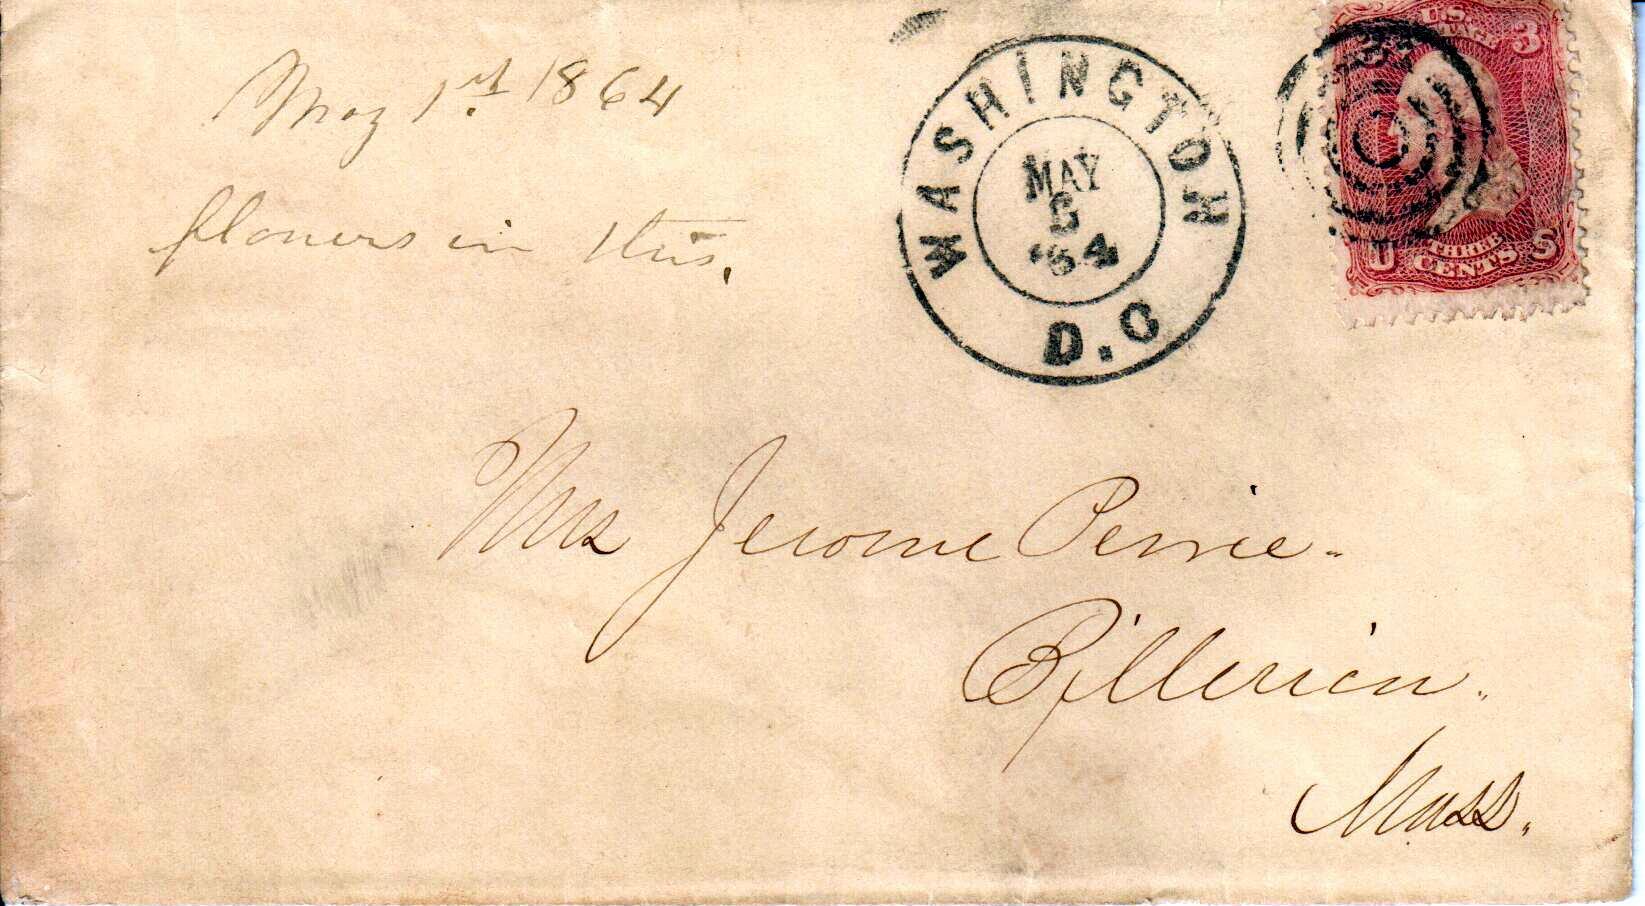 May 1st. 1864
flowers in this.
WASHINGTON
MAY
'64
D.C
U.S. POSTAGE 3
THREE
U CENTS S
Mrs Jerome Peirce.
Billerica.
Mass.